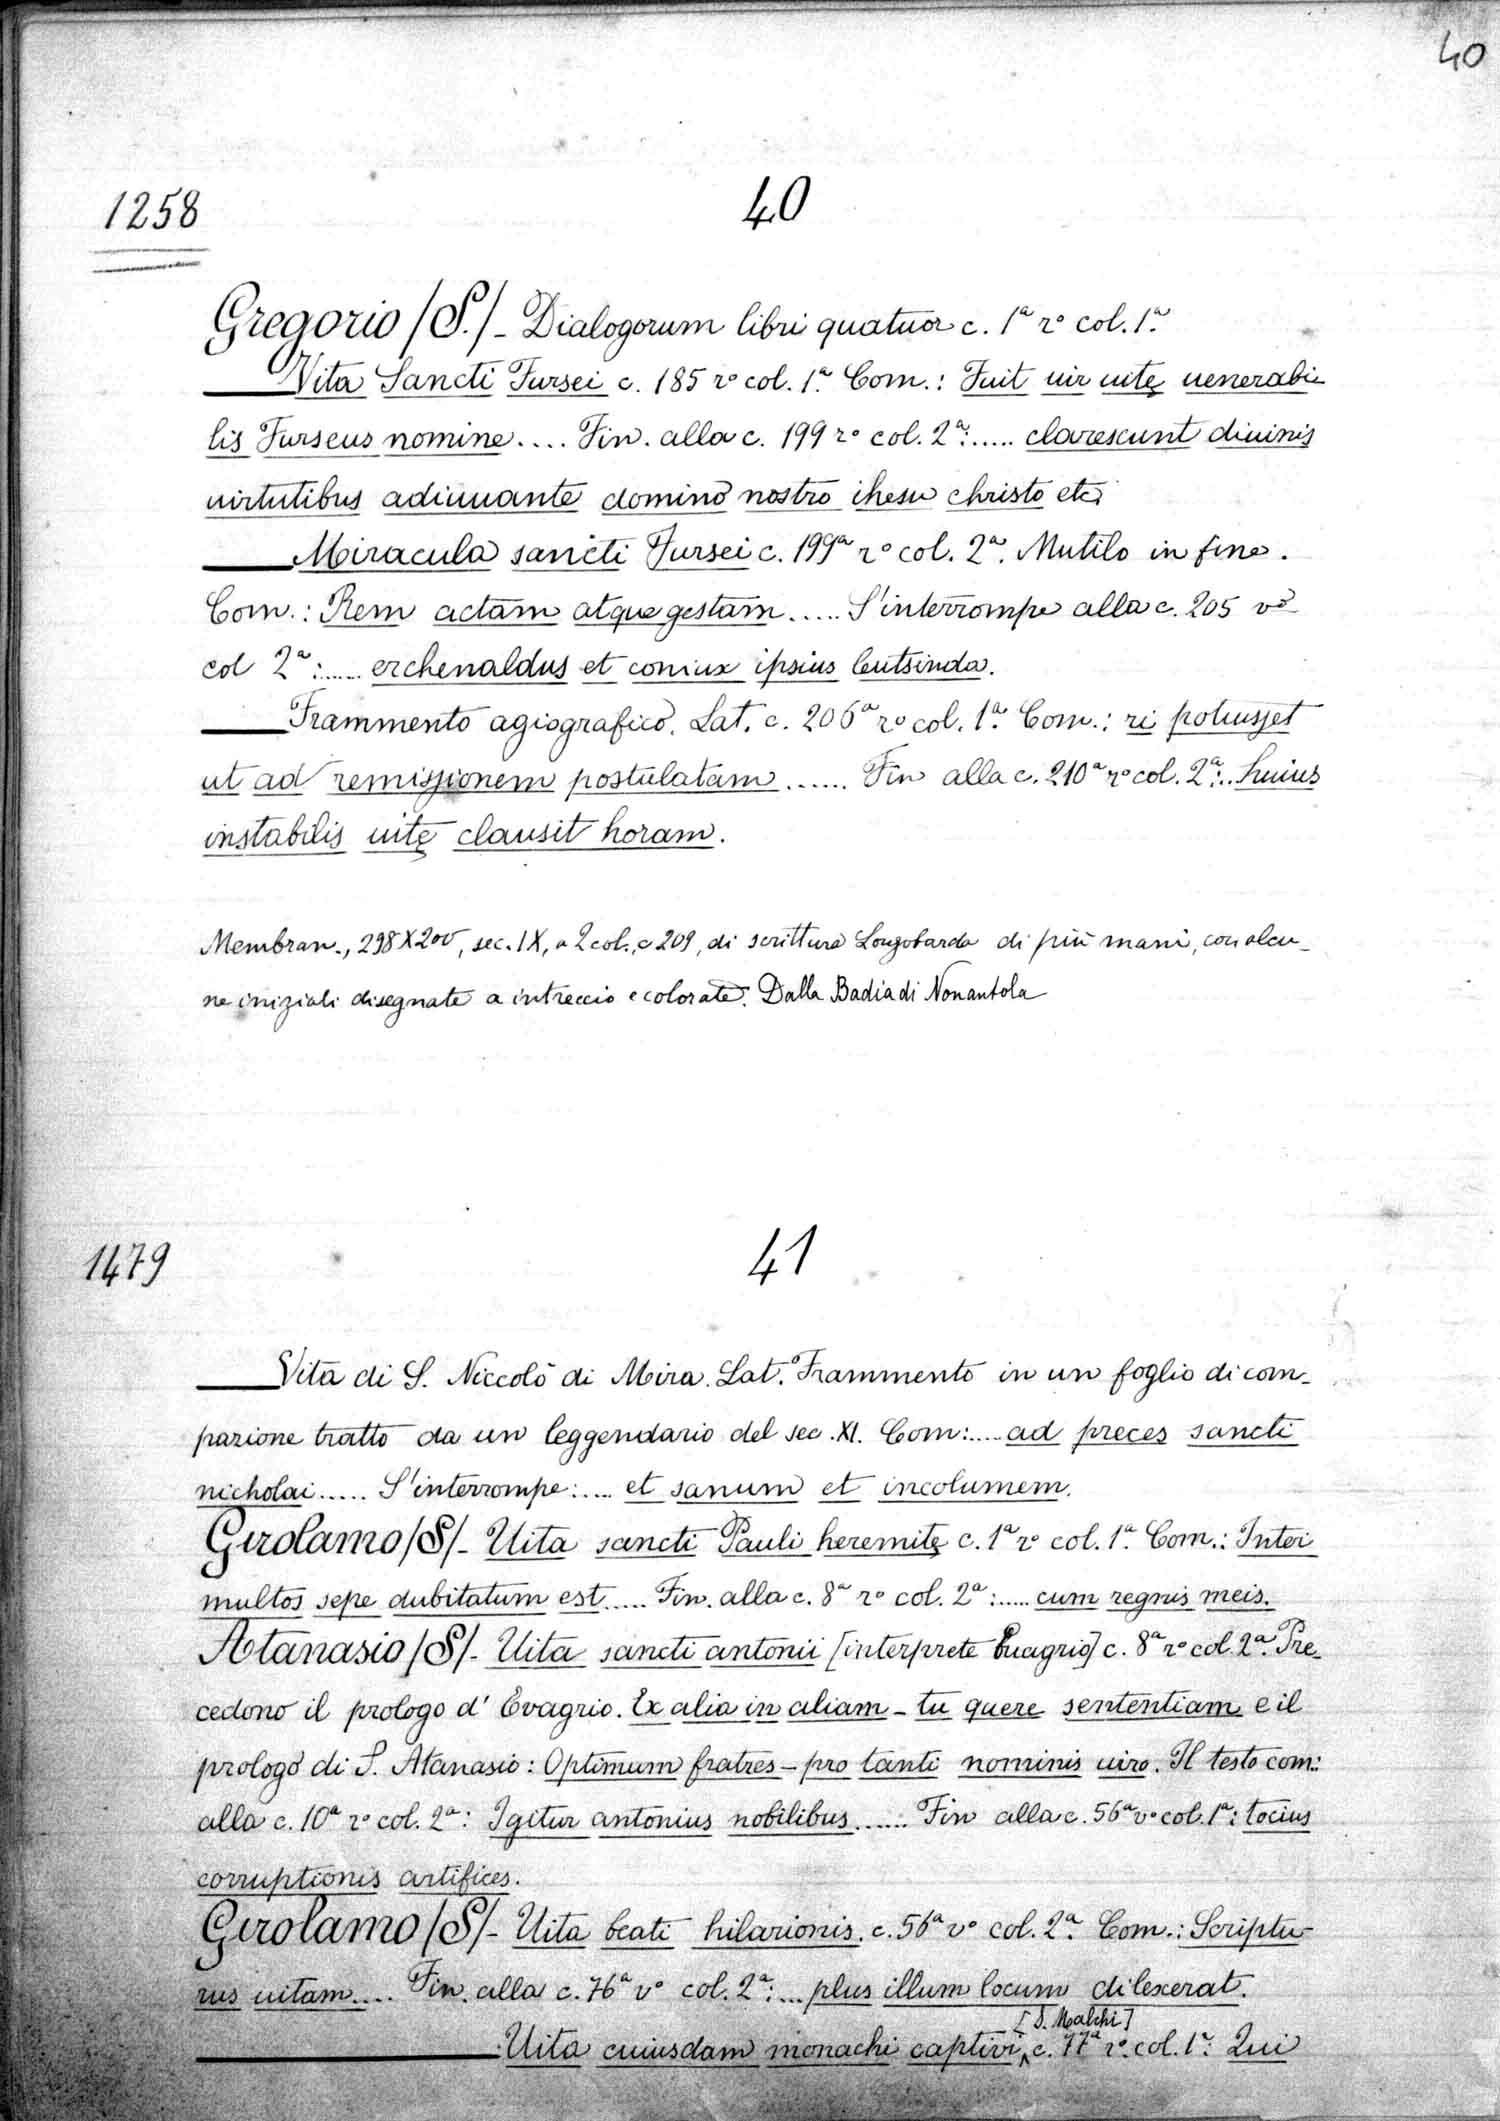 40
1258
40
Gregorio /S./ - Dialogorum libri quatuor c. 1ª rº col. 1ª
Vita Sancti Fursei c. 185 rº col. 1ª Com.: Fuit uir uitę uenerabi-
lis Furseus nomine.... Fin. alla c. 199 rº col. 2ª:..... clarescunt diuinis
uirtutibus adiuuante domino nostro ihesu christo etc.
Miracula sancti Fursei c. 199ª rº col. 2ª. Mutilo in fine.
Com.: Rem actam atque gestam..... S'interrompe alla c. 205 vº
col 2ª:..... erchenaldus et coniux ipsius leutsinda.
Frammento agiografico. Lat. c. 206ª rº col. 1ª Com.: ri potuisset
ut ad remissionem postulatam...... Fin alla c. 210ª rº col. 2ª:.. huius
instabilis uitę clausit horam.
Membran., 298X200, sec. IX, a 2 col., c 209, di scrittura Longobarda di più mani, con alcu-
ne iniziali disegnate a intreccio e colorate. Dalla Badia di Nonantola
1479
41
Vita di S. Niccolò di Mira. Lat. Frammento in un foglio di com-
pazione tratto da un leggendario del sec. XI. Com:.... ad preces sancti
nicholai..... S'interrompe:.... et sanum et incolumem.
Girolamo /S/- Uita sancti Pauli heremitę c. 1ª rº col. 1ª. Com.: Inter
multos sepe dubitatum est..... Fin. alla c. 8ª rº col. 2ª:..... cum regnis meis.
Atanasio /S/- Uita sancti antonii [interprete Euagrio] c. 8ª rº col. 2ª. Pre-
cedono il prologo d' Evagrio. Ex alia in aliam - tu quere sententiam e il
prologo di S. Atanasio: Optimum fratres - pro tanti nominis uiro. Il testo com:
alla c. 10ª rº col. 2ª: Igitur antonius nobilibus...... Fin alla c. 56ª vº col. 1ª: tocius
corruptionis artifices.
Girolamo /S/- Uita beati hilarionis. c. 56ª vº col. 2ª. Com.: Scriptu-
rus uitam.... Fin. alla c. 76ª vº col. 2ª:... plus illum locum dilexerat.
[S. Malchi]
Uita cuiusdam monachi captivi, c. 77ª rº. col. 1ª: Qui